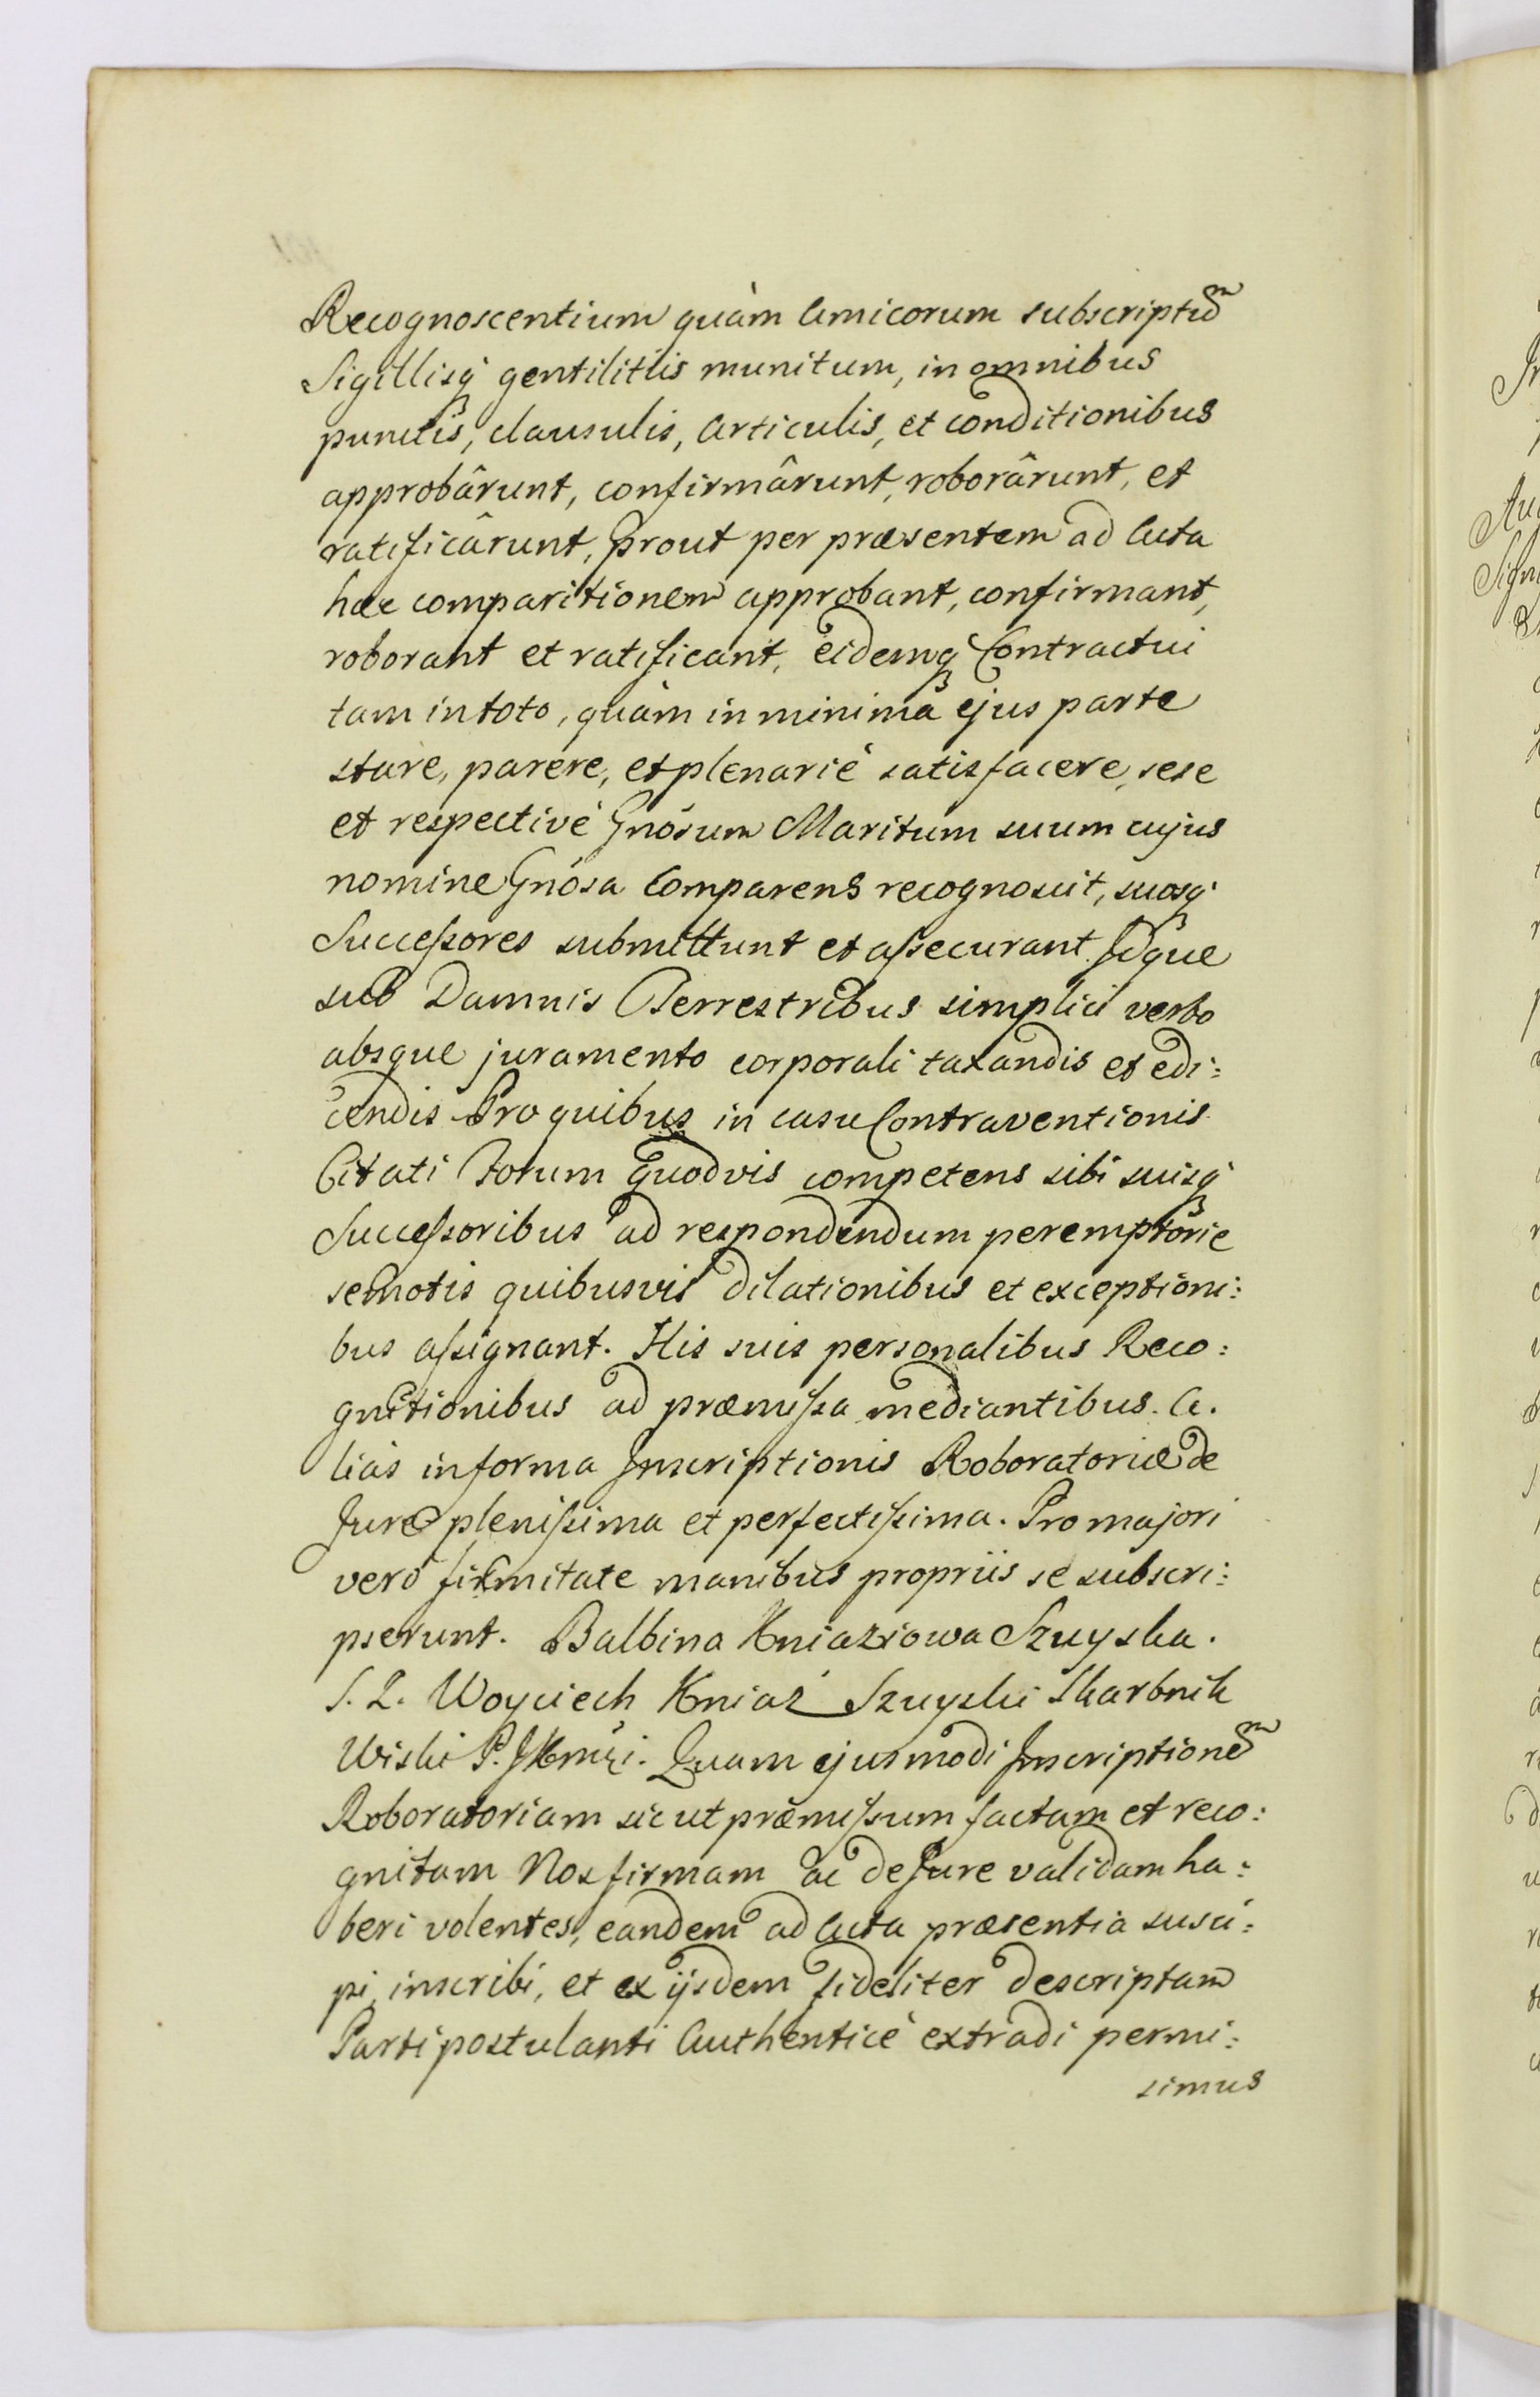 Recognoscentium quàm Amicorum subscriptũ
Sigillisq́ gentilitiis munitum, in omnibus
punctis, clausulis, Articulis, et conditionibus
approbârunt, confirmârunt, roborârunt, et
ratificârunt, prout per præsentem ad Acta
hæc comparitionem approbant, confirmant,
roborant et ratificant, eidemq́ Contractui
tam in toto, quàm in minimâ ejus parte
stare, parere, et plenariè satisfacere, sese
et respectivè Gnôsum Maritum suum cujus
nomine Gnôsa Comparens recognoscit, suosq́
Successores submittunt et assecurant. Idque
sub Damnis Terrestribus simplici verbo
absque juramento corporali taxandis et edi:
cendis Pro quibus in casu Contraventionis
Citati Forum Quodvis competens sibi suisq́
Successoribus ad respondendum peremptorie
semotis quibusvis dilationibus et exceptioni:
bus assignant. His suis personalibus Reco:
gnitionibus ad præmissa mediantibus. A.
liàs in forma Inscriptionis Roboratoriæ de
Jure plenissima et perfectissima. Pro majori
verò firmitate manibus propriis se subscri:
pserunt. Balbina Kniaziowa Szuyska.
Woyciech Kniaź Szuyski Skarbnik
Quam ejusmodi Inscriptionẽ
Roboratoriam sic ut præmissum factam et reco:
gnitam Nos firmam ac de Jure validam ha:
beri volentes, eandem ad Acta præsentia susci:
pi, inscribi, et ex ijsdem fideliter descriptam
Parti postulanti Authenticè extradi permi:
simus